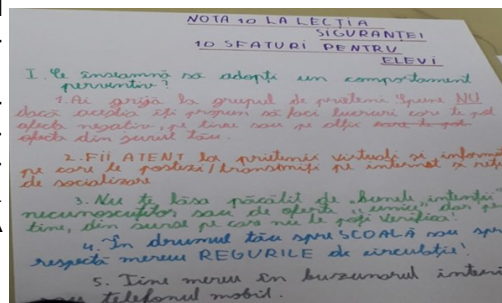 NOTA 10 LA LECȚIA
SIGURANȚEI
10 SFATURI PENTRU
ELEVI
I. Ce înseamnă să adopți un comportament
perventiv?
1. Ai grijă la grupul de prieteni. Spune NU
dacă aceștia îți propun să faci lucruri care te pot
afecta negativ, pe tine sau pe alții care te pot
afecta din jurul tău.
2. FII ATENT la prietenii virtuali și
pe care le postezi/transmiți pe internet și
de socializare
3. Nu te lăsa păcălit de „bunele” intenții
necunoscuților sau de oferte „unice”, dar
tine, din surse pe care nu le poți verifica!
4. În drumul tău spre ȘCOALĂ sau spre
respectă mereu REGURILE de circulație!
5. Ține mereu în buzunarul
telefonul mobil.